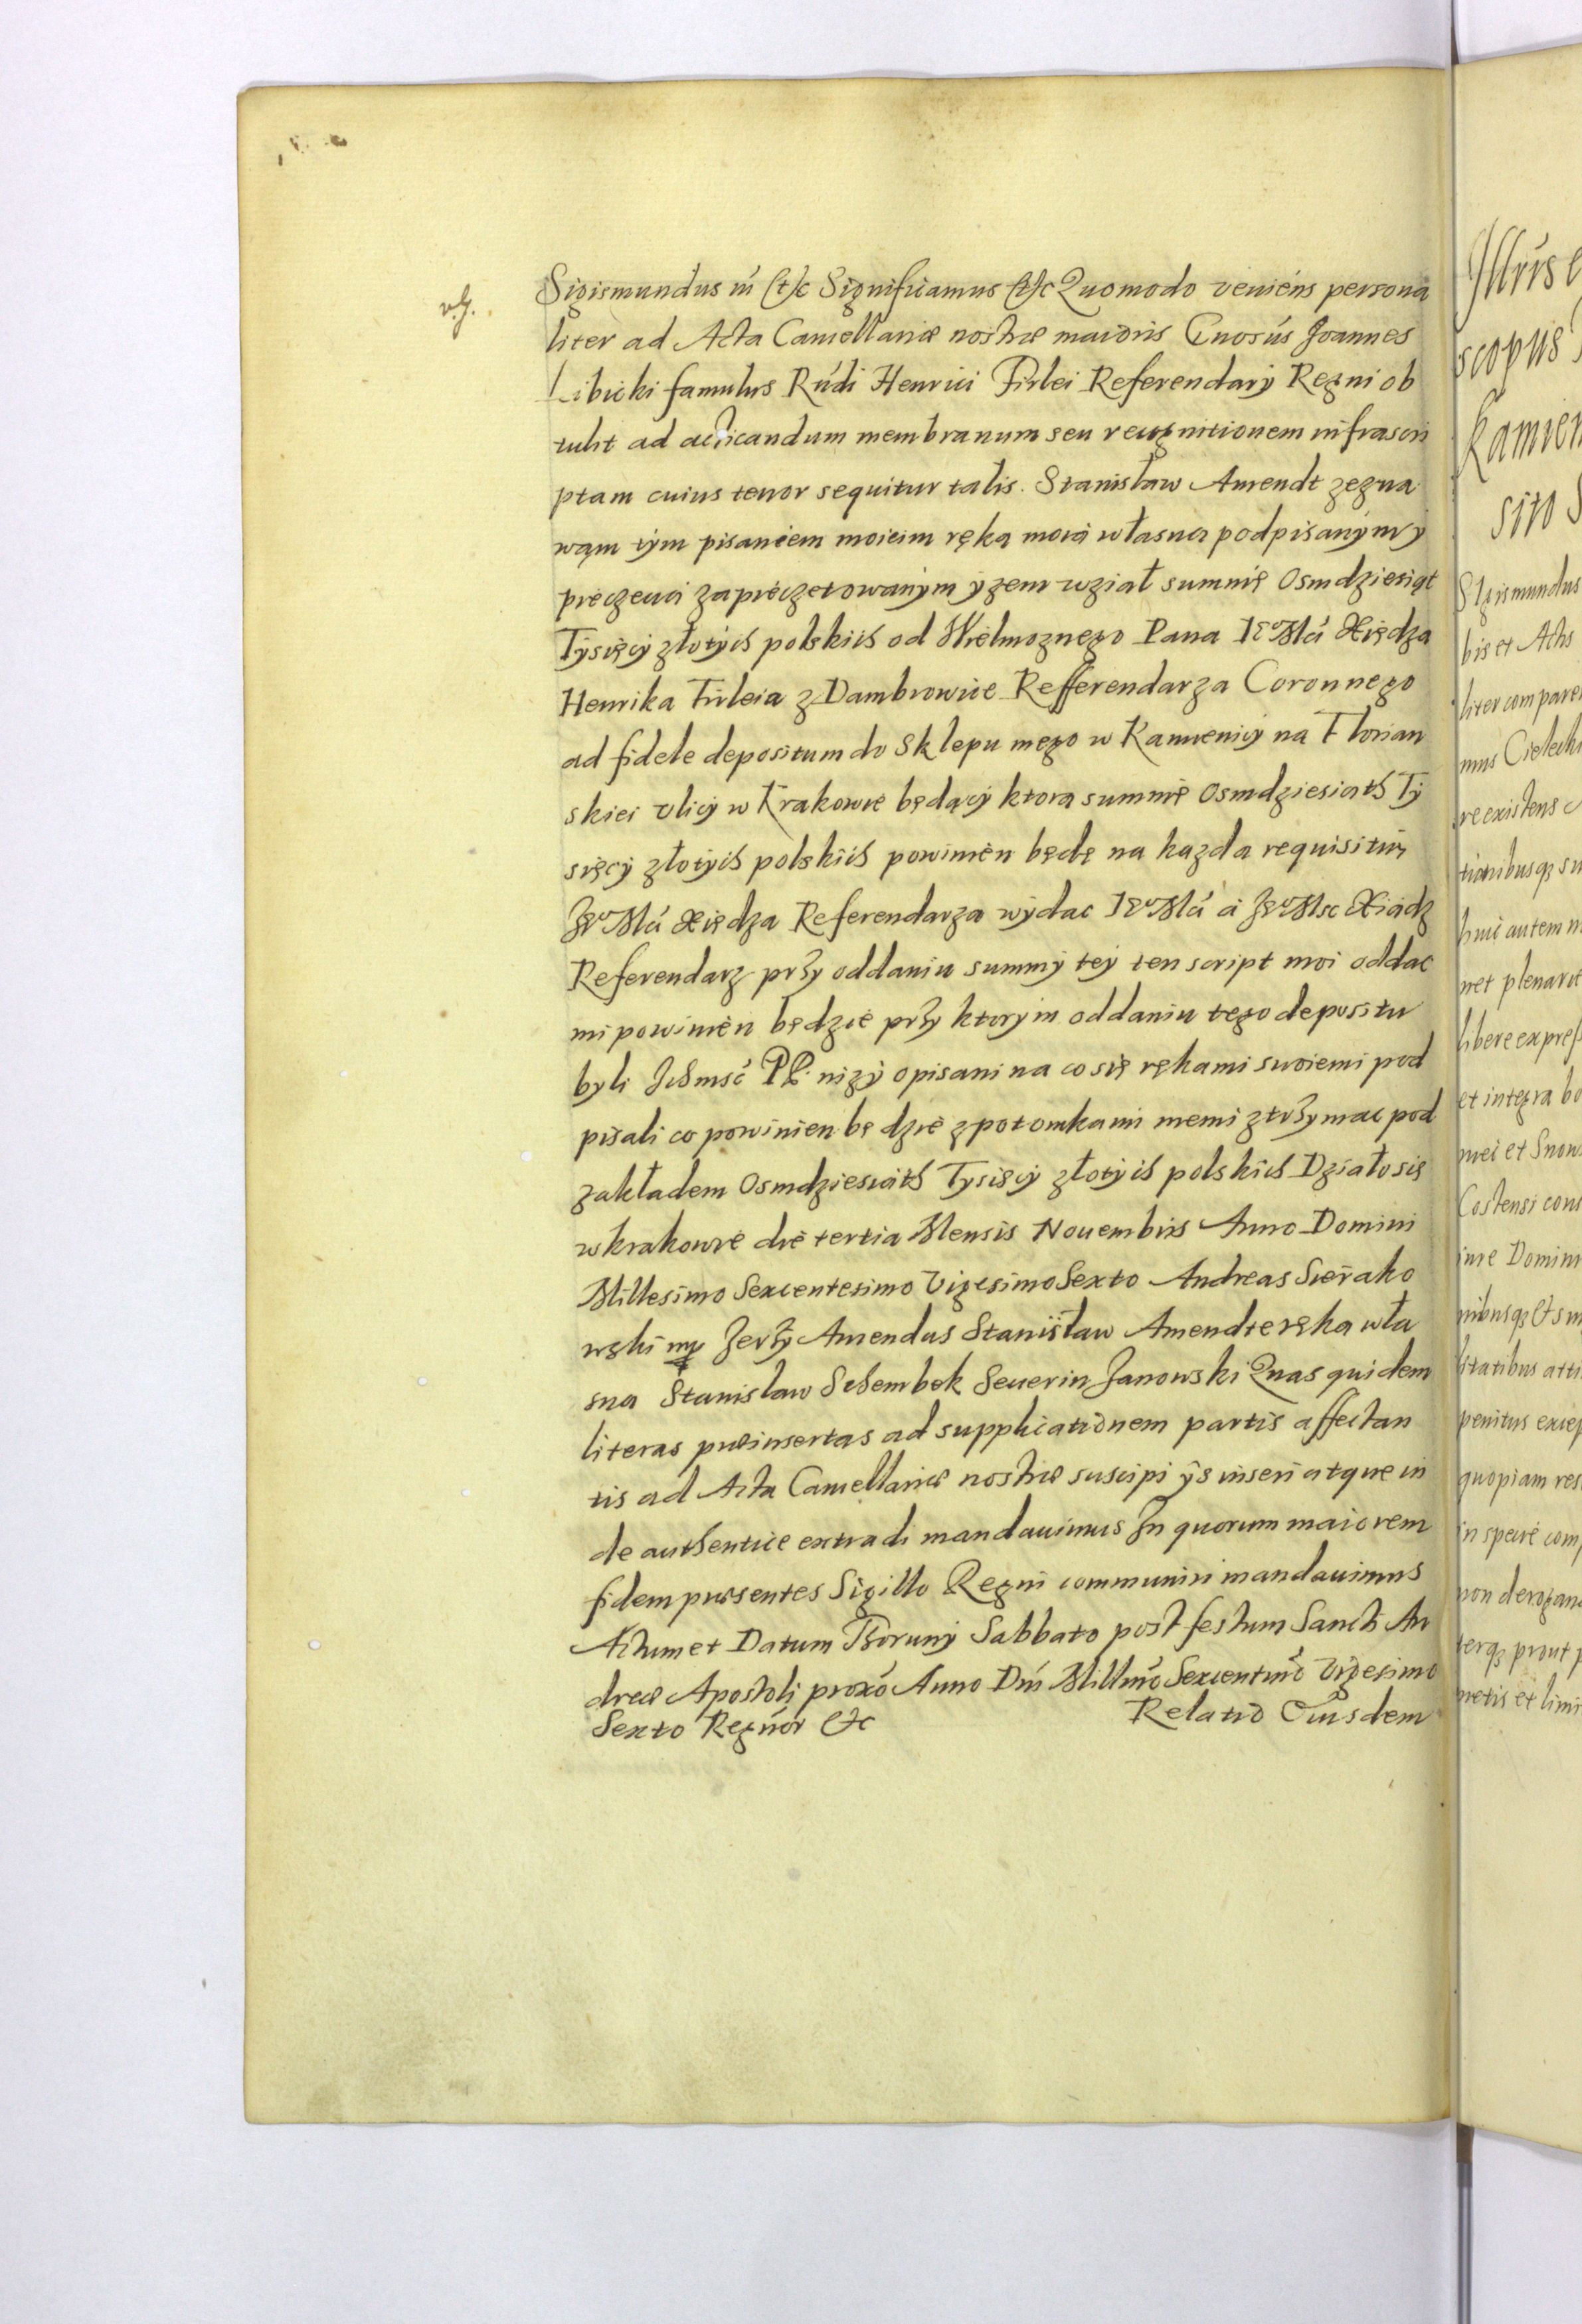 v.g.
Sigismundus iii etc Significamus etc Quomodo veniens persona
liter ad Acta Cancellariæ nostræ maioris Gnosus Joannes
Libicki famulus Rudi Henrici Firlei Referendarÿ Regni ob
tulit ad acticandum membranum seu recognitionem infrascri
ptam cuius tenor sequitur talis. Stanisław Amendt zezna
wąm tÿm pisaniem moieim ręką moią własną podpisanÿm ÿ
pieczecią zapieczetowanÿm ÿzem wziął summę Osmdziesiąt
Tÿsięcÿ złotÿch polskich od Wielmoznego Pana Je⁰ Mći Xiędza
Henrika Firleia z Dambrowice Refferendarza Coronnego
ad fidele depositum do Sklepu mego w Kamienicÿ na Florian
skiei vlicÿ w Krakowie będącÿ ktorą summę Osmdziesiath Tÿ
sięcÿ złotÿch polskich powinien będę na kazda requisitią
Je⁰ Mći Xiędza Referendarza wÿdac Je⁰ Mći a Je⁰ Msc Xiądz
Referendarz przÿ oddaniu summÿ teÿ ten script moi oddac
mi powinien będzie przÿ ktorÿm oddaniu tego depositu
byli Jchmsć PP. nizÿ opisani na co się rękami swoiemi pod
pisali co powinien będzie z potomkami memi ztrzÿmac pod
zakładem Osmdziesiąth Tysięcÿ złotÿch polskich Działo się
w krakowie die tertia Mensis Nouembris Anno Domini
Millesimo Sexcentesimo Vigesimo Sexto Andreas Sierako
wski mp Jerzÿ Amendus Stanisław Amendt ręka wła
sna Stanislaw Schembek Seuerin Janowski Quas quidem
literas præinsertas ad supplicationem partis affectan
tis ad Acta Cancellariæ nostræ suscipi ÿs inseri atque in
de authentice extradi mandauimus In quorum maiorem
fidem præsentes Sigillo Regni communiri mandauimus
Actum et Datum Thorunÿ Sabbato post festum Sancti An
dreæ Apostoli proxo Anno Dni Millmo Sexcentmo Vigesimo
Sexto Regnor etc Relatio Eiusdem
scopus
Kamien
sito S
Sigismundus
bis et Actis
liter compare
mus Cielecki
re existens
tionibusq su
huic autem
net plenarie
libere expres
et integra bo
Costensi cons
iure Domini
nibusq et su
litatibus atti
penitus excep
quopiam res
in specie com
non derogan
terq prout p
metis et limi